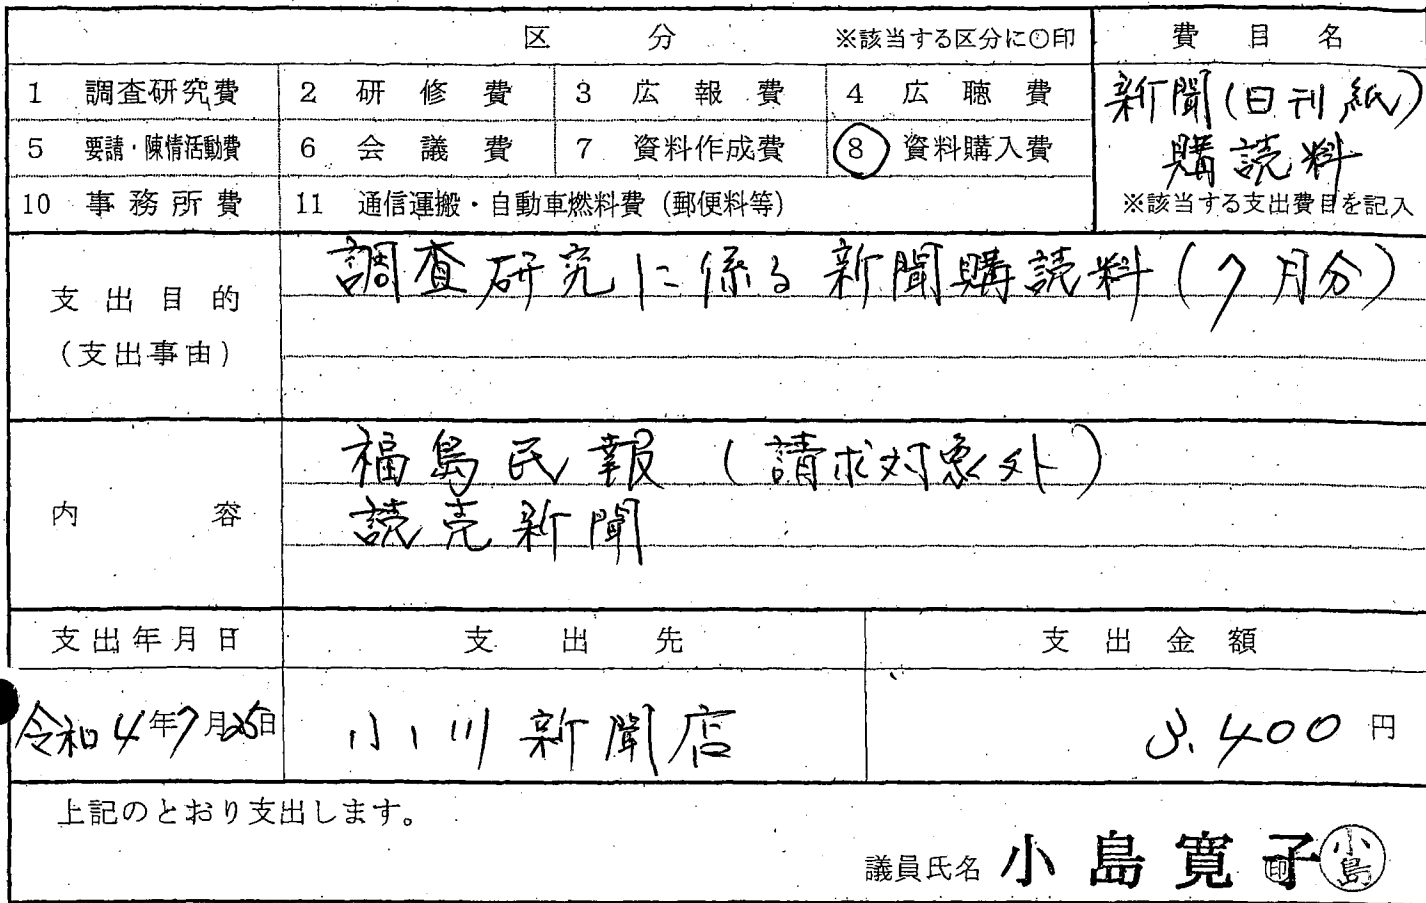 区 分 ※該当する区分に○印 費目名
1 調査研究費 2 研修費 3 広報費 4 広聴費 新聞(日刊紙)
5 要請・陳情活動費 6 会議費 7 資料作成費 8 資料購入費 購読料
10 事務所費 11 通信運搬・自動車燃料費(郵便料等) ※該当する支出費目を記入
支出目的
(支出事由)
調査研究に係る新聞購読料(7月分)
内容
福島民報(請求対象外)
読売新聞
支出年月日 支出先 支出金額
令和4年7月25日 小川新聞店 3,400円
上記のとおり支出します。
議員氏名 小島寛子 印 小島